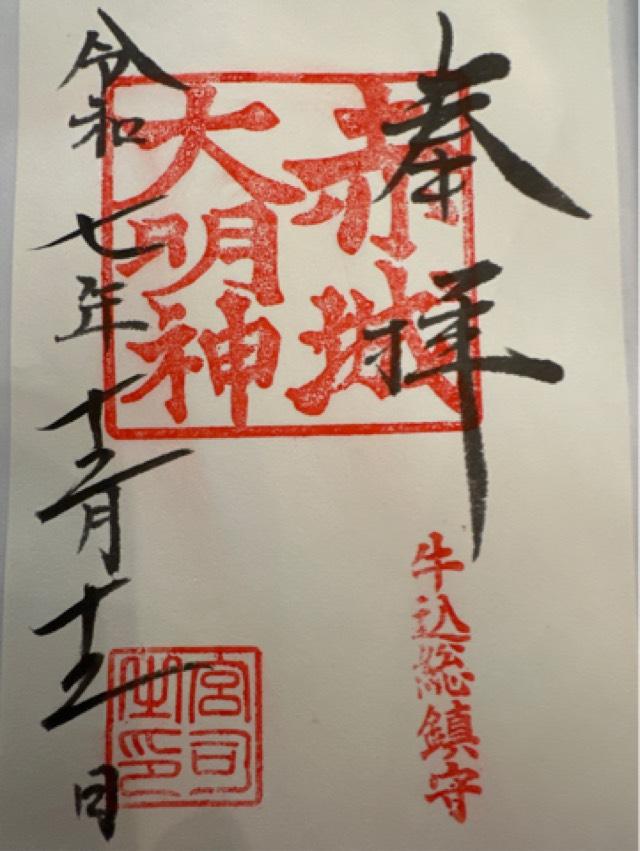 奉拝
赤城
大明神
牛込総鎮守
令和七年十二月十二日
宮司
之印